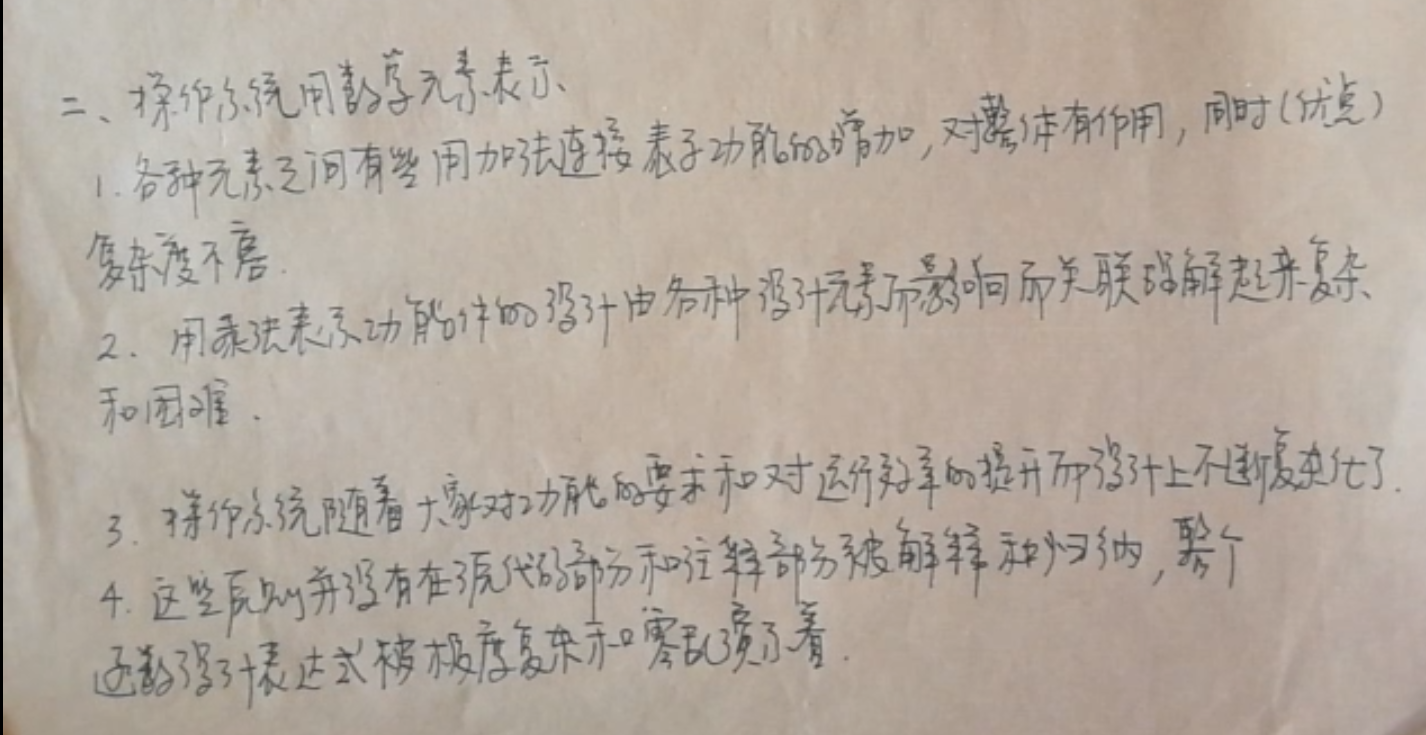 二、操作系统用数学元素表示
1. 各种元素之间有些用加法连接表示功能的增加,对整体有作用,同时(优点)
复杂度不高.
2. 用乘法表示功能件的设计由各种设计元素而影响而关联的解起来复杂
和困难.
3. 操作系统随着大家对功能的要求和对运行效率的提升而设计上不断复杂化了.
4. 这些原则并没有在源代码部分和注释部分被解释和归纳,整个
函数设计表达式被极度复杂和零乱演示着.